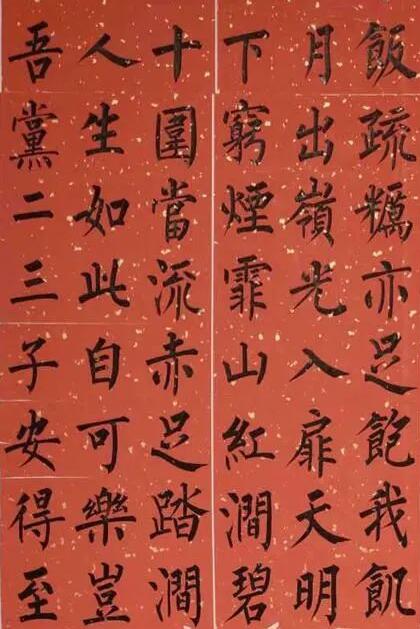 飯疏糲亦足飽我飢
月出嶺光入扉天明
下窮煙霏山紅澗碧
十圍當流赤足踏澗
人生如此自可樂豈
吾黨二三子安得至